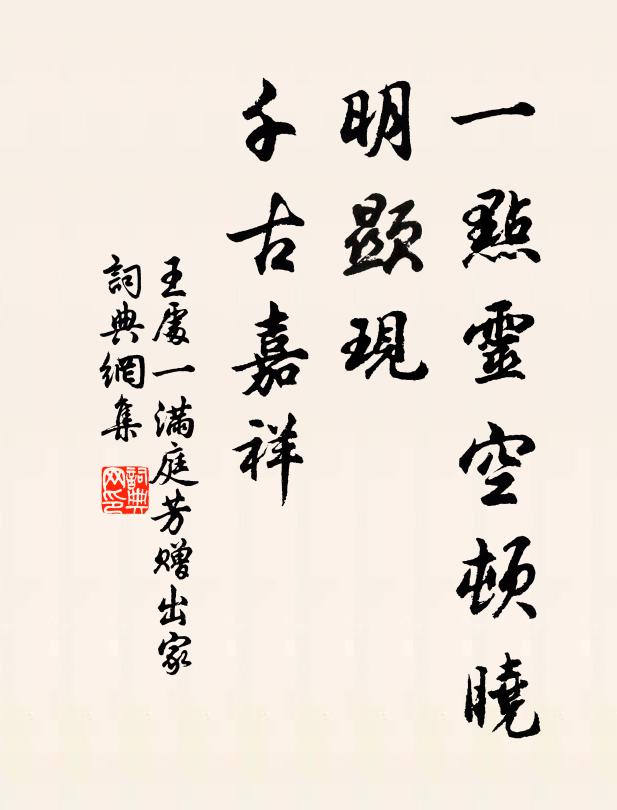 一點靈空頓曉
明顯現
千古嘉祥
王處一滿庭芳贈出家
詞典網集
詞典
网印